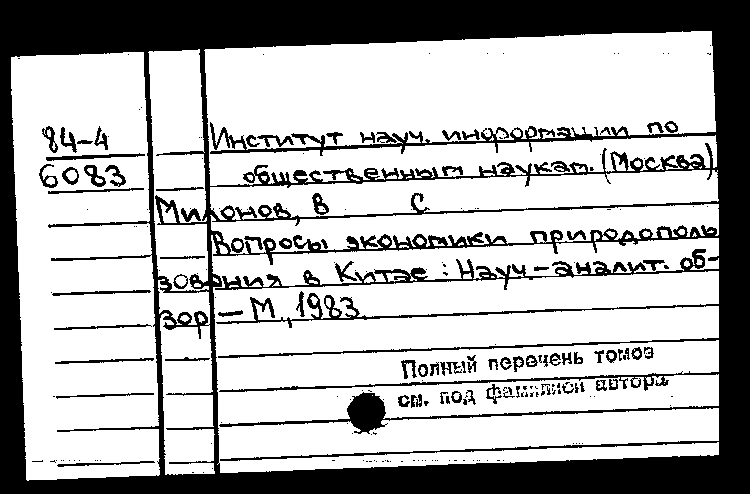 84-4 Институт науч. информации по
6083 общественным наукам. (Москва).
Милонов, В С
Вопросы экономики природополь
зования в Китае : Науч.-аналит. об-
зор — М., 1983.
Полный перечень томов
см. под фамилией автора